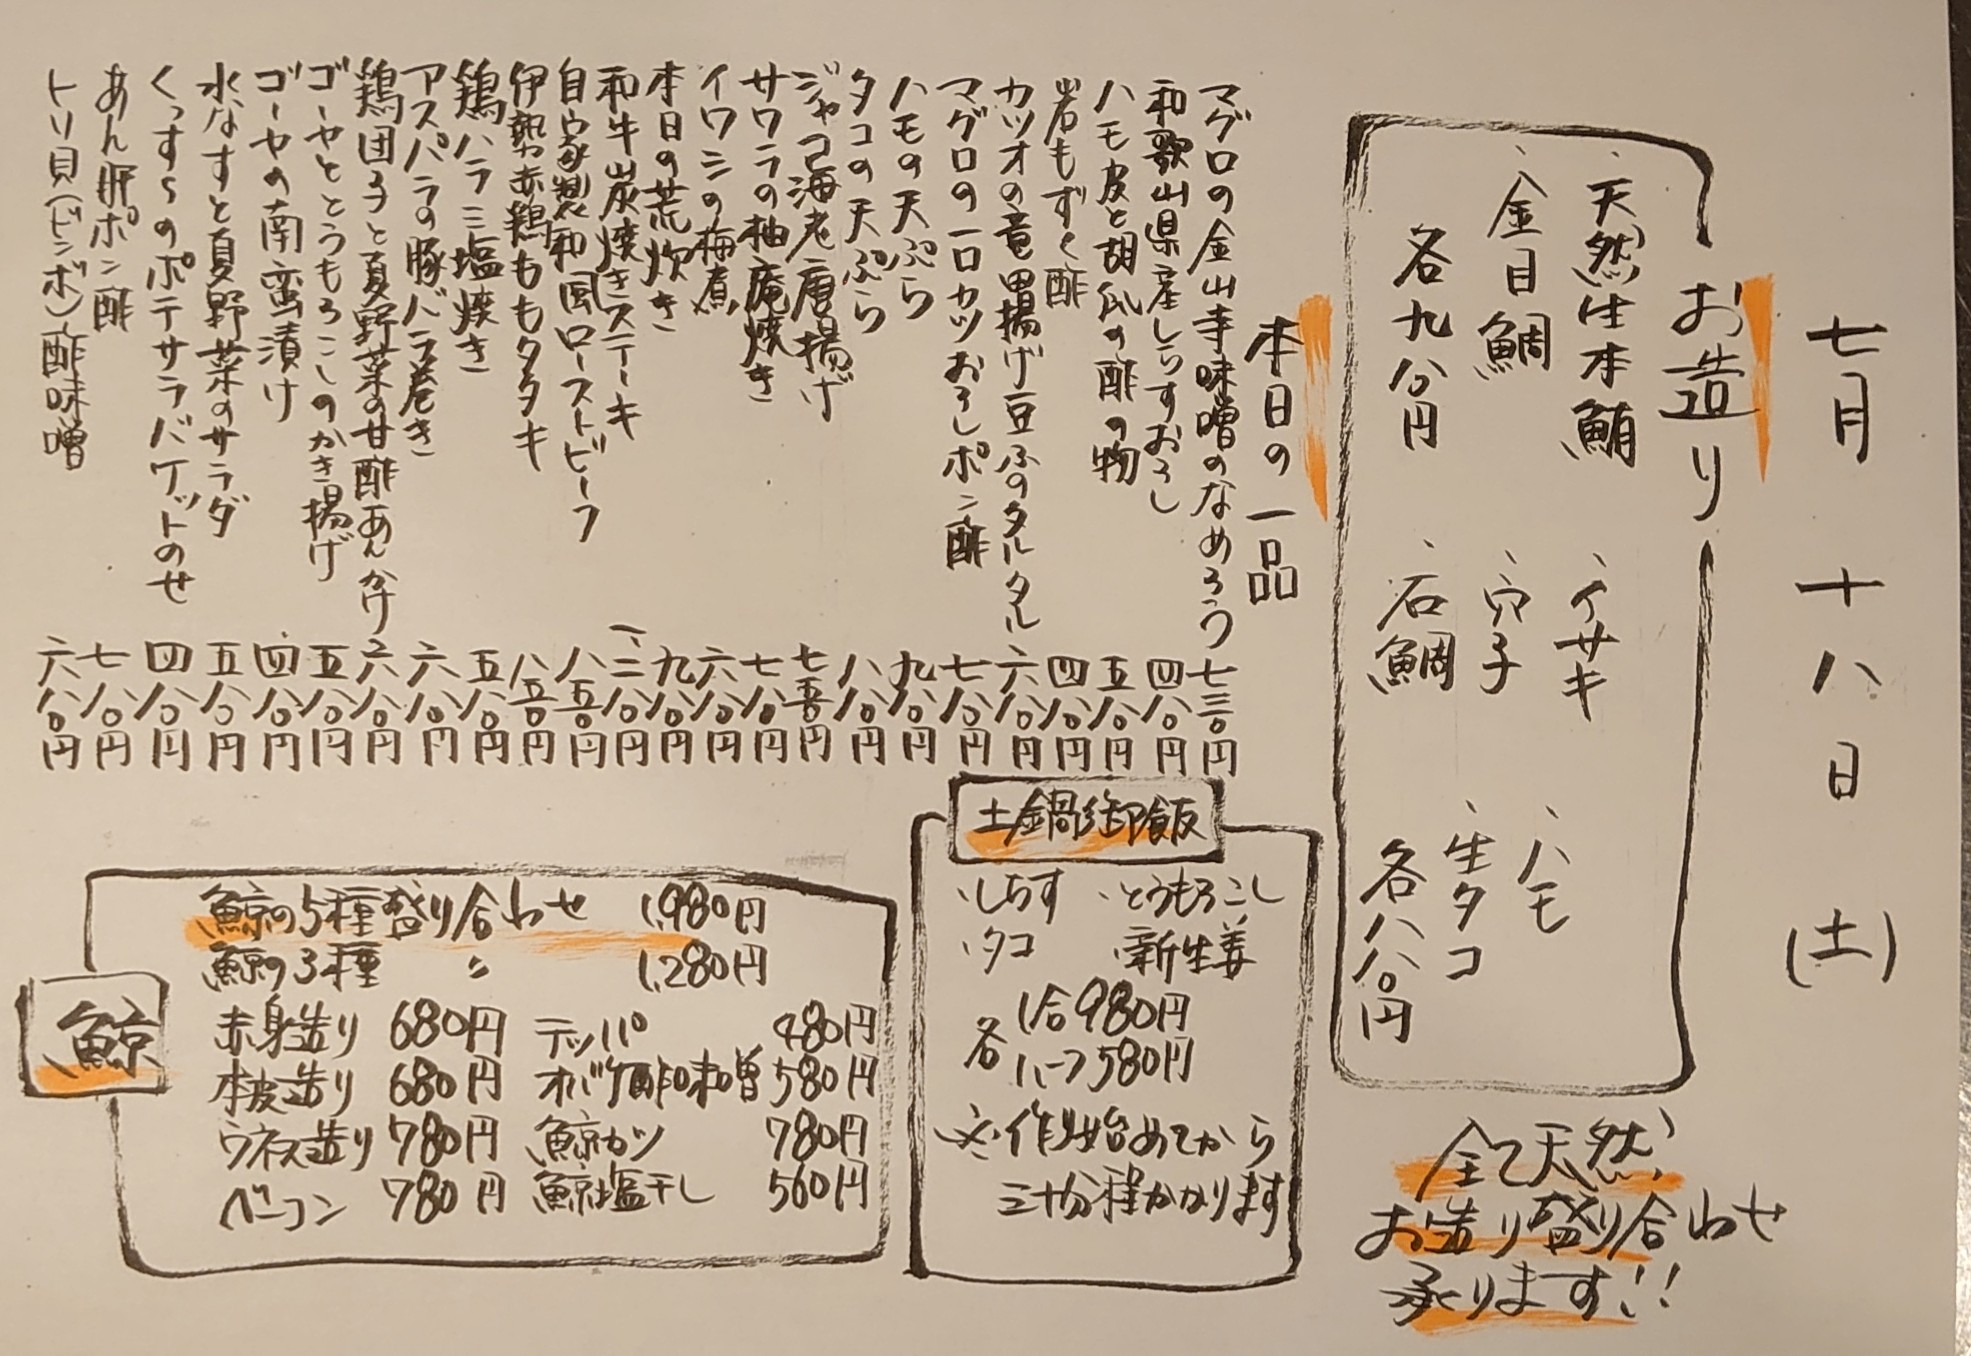 七月十八日(土)
お造り
、天然生本鮪
、金目鯛
各九八〇円
、イサキ
、穴子
、石鯛
、ハモ
、生タコ
各八八〇円
全て天然
お造り盛り合わせ
承ります!!
本日の一品
マグロの金山寺味噌のなめろう 七三〇円
和歌山県産しらすおろし 四八〇円
ハモ皮と胡瓜の酢の物 五八〇円
岩もずく酢 四八〇円
カツオの竜田揚げ豆ふのタルタル 六八〇円
マグロの一口カツおろしポン酢 七八〇円
ハモの天ぷら 九八〇円
タコの天ぷら 八八〇円
ジャコ海老唐揚げ 七五〇円
サワラの柚庵焼き 七八〇円
イワシの梅煮 六八〇円
本日の荒炊き 九八〇円
和牛炭焼きステーキ 一、二八〇円
自家製和風ローストビーフ 八五〇円
伊勢赤鶏ももタタキ 八五〇円
鶏ハラミ塩焼き 五八〇円
アスパラの豚バラ巻き 六八〇円
鶏団子と夏野菜の甘酢あんかけ 六八〇円
ゴーヤととうもろこしのかき揚げ 五八〇円
ゴーヤの南蛮漬け 四八〇円
水なすと夏野菜のサラダ 五八〇円
くっすらのポテサラバケットのせ 四八〇円
あん肝ポン酢 七八〇円
トリ貝(ドンボ)酢味噌 六八〇円
土鍋御飯
、しらす 、とうもろこし
、タコ 、新生姜
各 1合980円
ハーフ580円
※作り始めてから
三十分程かかります
鯨
鯨の5種盛り合わせ 1,980円
鯨の3種 〃 1,280円
赤身造り 680円 テッパ 480円
本皮造り 680円 オバケ酢味噌 580円
ウネス造り 780円 鯨カツ 780円
ベーコン 780円 鯨塩干し 560円